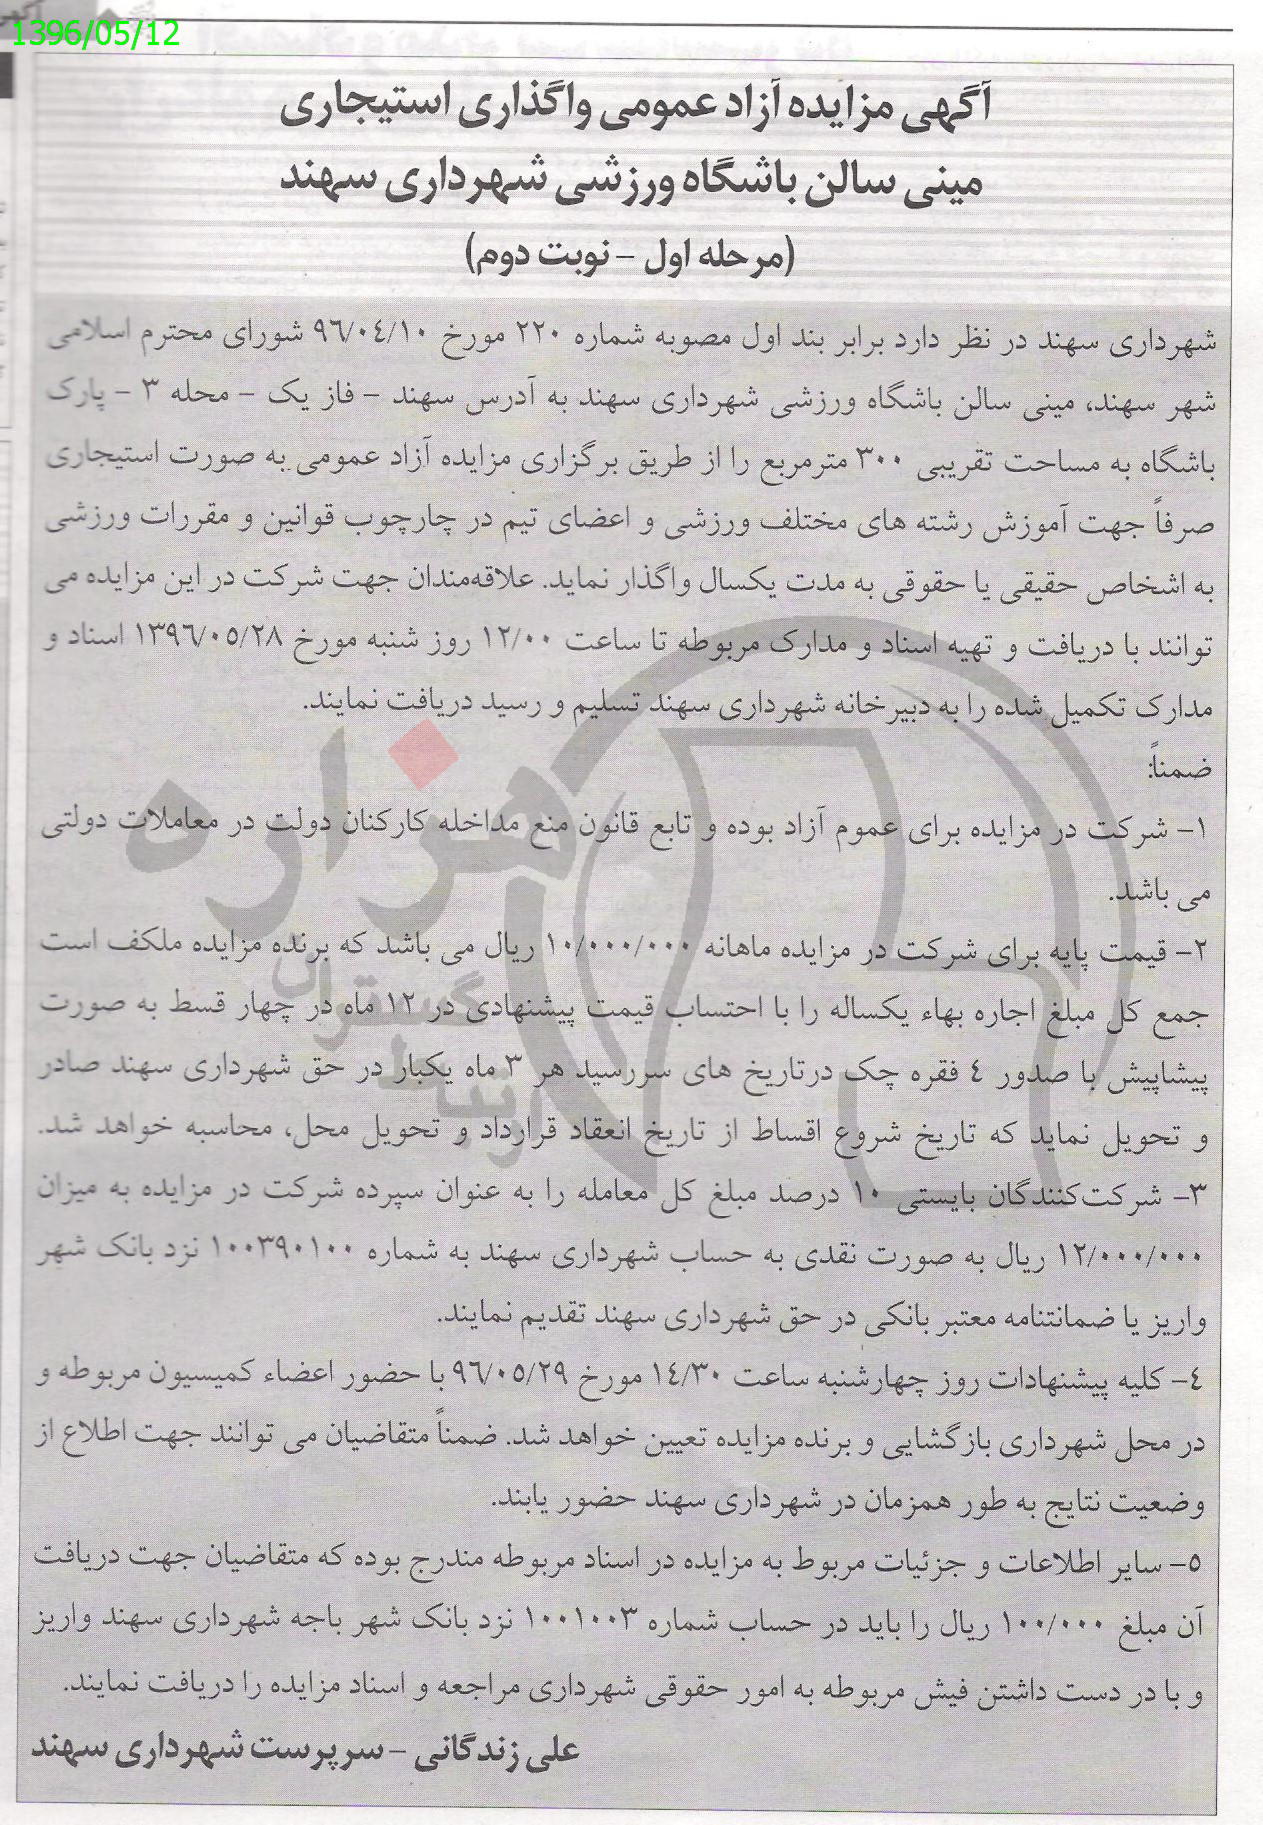 1396/05/12
آگهی مزایده آزاد عمومی واگذاری استیجاری
مینی سالن باشگاه ورزشی شهرداری سهند
(مرحله اول – نوبت دوم)
شهرداری سهند در نظر دارد برابر بند اول مصوبه شماره ۲۲۰ مورخ ۹۶/۰۴/۱۰ شورای محترم اسلامی
شهر سهند، مینی سالن باشگاه ورزشی شهرداری سهند به آدرس سهند – فاز یک – محله ۳ – پارک
باشگاه به مساحت تقریبی ۳۰۰ مترمربع را از طریق برگزاری مزایده آزاد عمومی به صورت استیجاری
صرفاً جهت آموزش رشته های مختلف ورزشی و اعضای تیم در چارچوب قوانین و مقررات ورزشی
به اشخاص حقیقی یا حقوقی به مدت یکسال واگذار نماید. علاقه‌مندان جهت شرکت در این مزایده می
توانند با دریافت و تهیه اسناد و مدارک مربوطه تا ساعت ۱۲/۰۰ روز شنبه مورخ ۱۳۹۶/۰۵/۲۸ اسناد و
مدارک تکمیل شده را به دبیرخانه شهرداری سهند تسلیم و رسید دریافت نمایند.
ضمناً:
۱- شرکت در مزایده برای عموم آزاد بوده و تابع قانون منع مداخله کارکنان دولت در معاملات دولتی
می باشد.
۲- قیمت پایه برای شرکت در مزایده ماهانه ۱۰/۰۰۰/۰۰۰ ریال می باشد که برنده مزایده ملکف است
جمع کل مبلغ اجاره بهاء یکساله را با احتساب قیمت پیشنهادی در ۱۲ ماه در چهار قسط به صورت
پیشاپیش با صدور ۴ فقره چک درتاریخ های سررسید هر ۳ ماه یکبار در حق شهرداری سهند صادر
و تحویل نماید که تاریخ شروع اقساط از تاریخ انعقاد قرارداد و تحویل محل، محاسبه خواهد شد.
۳- شرکت‌کنندگان بایستی ۱۰ درصد مبلغ کل معامله را به عنوان سپرده شرکت در مزایده به میزان
۱۲/۰۰۰/۰۰۰ ریال به صورت نقدی به حساب شهرداری سهند به شماره ۱۰۰۳۹۰۱۰۰ نزد بانک شهر
واریز یا ضمانتنامه معتبر بانکی در حق شهرداری سهند تقدیم نمایند.
۴- کلیه پیشنهادات روز چهارشنبه ساعت ۱۴/۳۰ مورخ ۹۶/۰۵/۲۹ با حضور اعضاء کمیسیون مربوطه و
در محل شهرداری بازگشایی و برنده مزایده تعیین خواهد شد. ضمناً متقاضیان می توانند جهت اطلاع از
وضعیت نتایج به طور همزمان در شهرداری سهند حضور یابند.
۵- سایر اطلاعات و جزئیات مربوط به مزایده در اسناد مربوطه مندرج بوده که متقاضیان جهت دریافت
آن مبلغ ۱۰۰/۰۰۰ ریال را باید در حساب شماره ۱۰۰۱۰۰۳ نزد بانک شهر باجه شهرداری سهند واریز
و با در دست داشتن فیش مربوطه به امور حقوقی شهرداری مراجعه و اسناد مزایده را دریافت نمایند.
علی زندگانی – سرپرست شهرداری سهند
هزاره